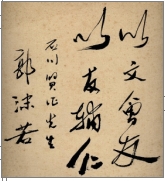 以文會友
以友輔仁
石川賢作先生
郭沫若